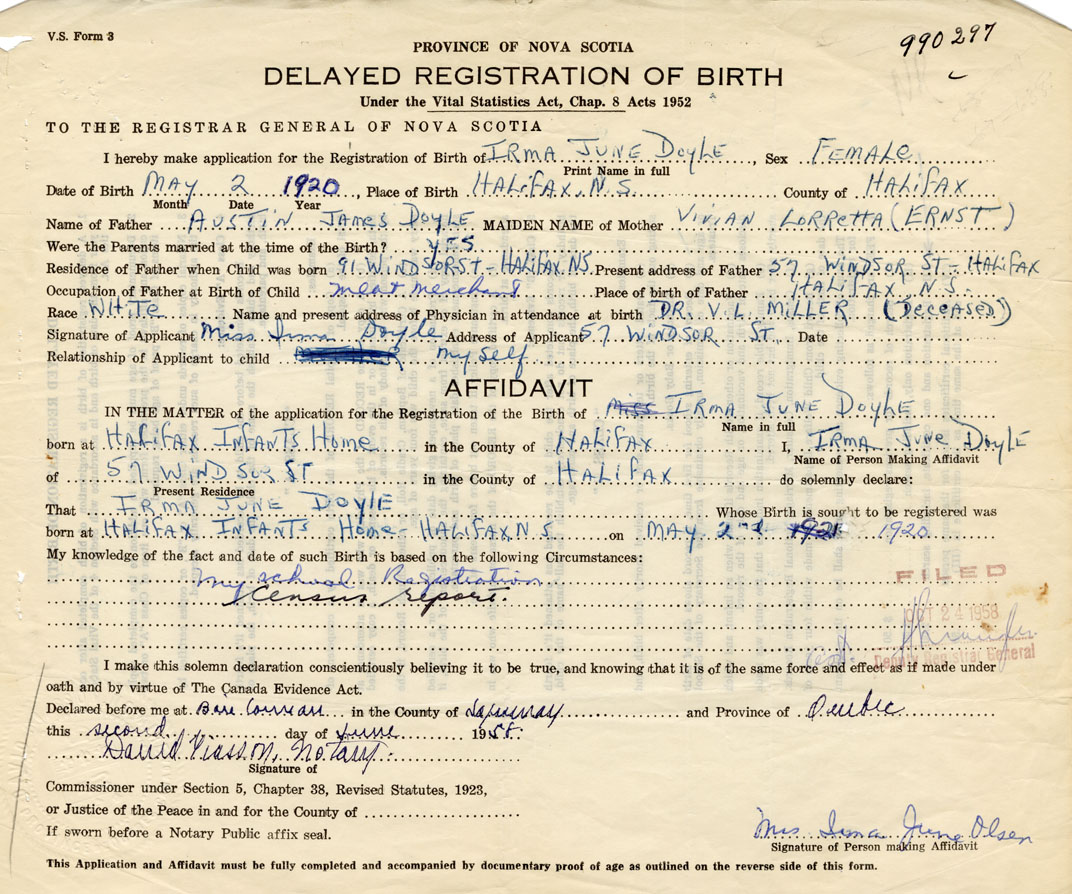 V.S. Form 3
990297
PROVINCE OF NOVA SCOTIA
DELAYED REGISTRATION OF BIRTH
Under the Vital Statistics Act, Chap. 8 Acts 1952
TO THE REGISTRAR GENERAL OF NOVA SCOTIA
I hereby make application for the Registration of Birth of IRMA JUNE DOYLE, Sex FEMALE
Print Name in full
Date of Birth MAY 2 1920, Place of Birth HALIFAX, N.S. County of HALIFAX
Month Date Year
Name of Father AUSTIN JAMES DOYLE MAIDEN NAME of Mother VIVIAN LORRETTA (ERNST)
Were the Parents married at the time of the Birth? YES
Residence of Father when Child was born 91 WINDSOR ST - HALIFAX NS. Present address of Father 57 WINDSOR ST - HALIFAX
Occupation of Father at Birth of Child meat merchant Place of birth of Father HALIFAX, N.S.
Race WHITE Name and present address of Physician in attendance at birth DR. V. L. MILLER (DECEASED)
Signature of Applicant Miss Irma Doyle Address of Applicant 57 WINDSOR ST. Date
Relationship of Applicant to child myself
AFFIDAVIT
IN THE MATTER of the application for the Registration of the Birth of Miss IRMA JUNE DOYLE
Name in full
born at HALIFAX INFANTS HOME in the County of HALIFAX I, IRMA JUNE DOYLE
Name of Person Making Affidavit
of 57 WINDSOR ST in the County of HALIFAX do solemnly declare:
Present Residence
That IRMA JUNE DOYLE Whose Birth is sought to be registered was
born at HALIFAX INFANTS HOME - HALIFAX N S. on MAY 2nd 1921 1920
My knowledge of the fact and date of such Birth is based on the following Circumstances:
My school Registration
Census report.
FILED
OCT 24 1958
Deputy Registrar General
I make this solemn declaration conscientiously believing it to be true, and knowing that it is of the same force and effect as if made under
oath and by virtue of The Canada Evidence Act.
Declared before me at in the County of Saguenay and Province of Quebec
this second day of June 1958.
David Notary.
Signature of
Commissioner under Section 5, Chapter 38, Revised Statutes, 1923,
or Justice of the Peace in and for the County of
If sworn before a Notary Public affix seal.
Mrs Irma June Olsen
Signature of Person making Affidavit
This Application and Affidavit must be fully completed and accompanied by documentary proof of age as outlined on the reverse side of this form.